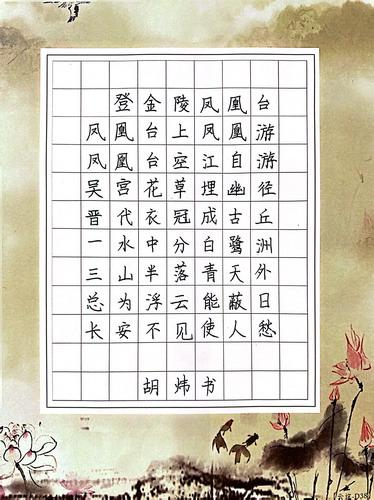 登金陵凤凰台
凤凰台上凤凰游
凤凰台空江自游
吴宫花草埋幽径
晋代衣冠成古丘
一水中分白鹭洲
三山半落青天外
总为浮云能蔽日
长安不见使人愁
胡炜书